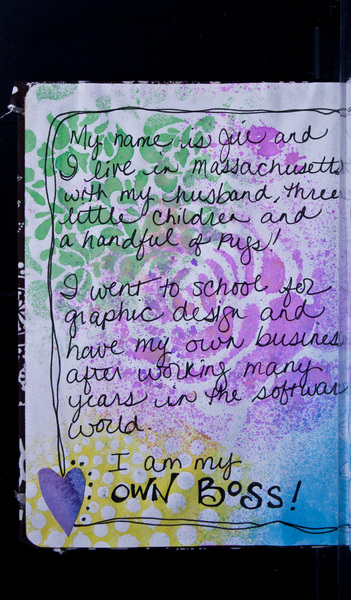 My name is Jill and
I live in Massachusetts
with my husband, three
little children and
a handful of pugs!
I went to school for
graphic design and
have my own busines
after working many
years in the softwar
world.
I am my
OWN BOSS!